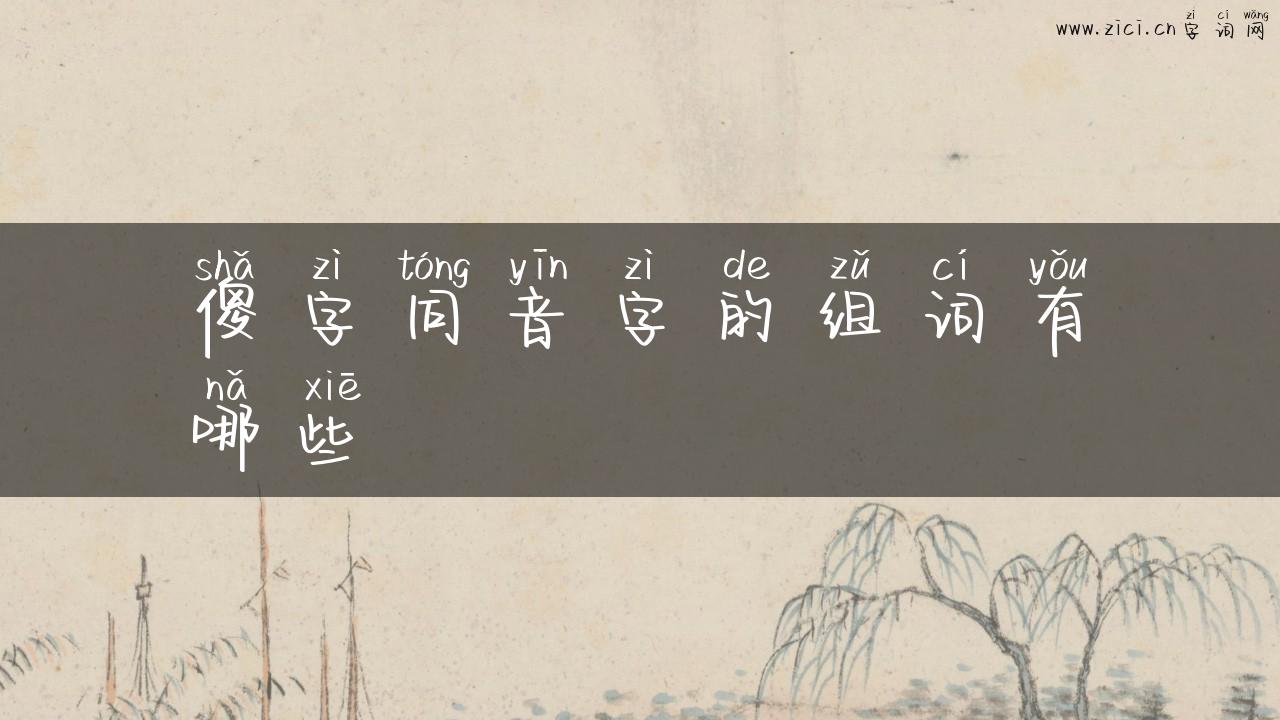 zì cí wǎng
www.zici.cn 字词网
shǎ zì tóng yīn zì de zǔ cí yǒu
傻字同音字的组词有
nǎ xiē
哪些